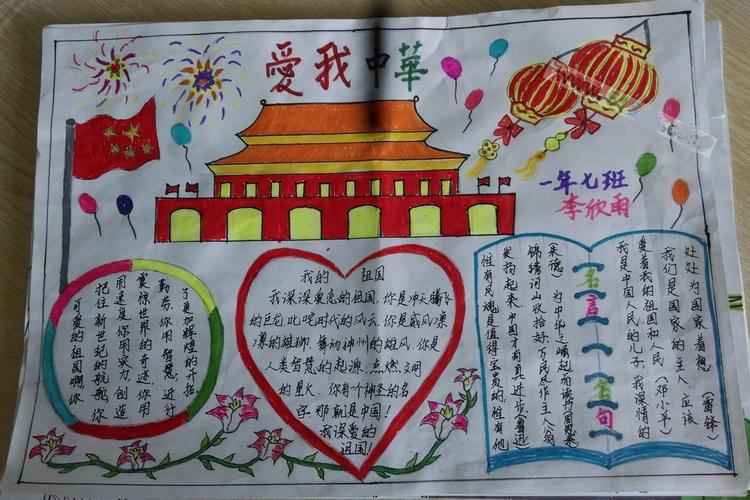 愛我中華
一年七班
李欣雨
我的 祖国
我深深爱亮的祖国,你是冲天腾飞
的巨龙,叱咤时代的风云,你是威风凛
凛的雄狮,舞动神州的雄风,你是
人类智慧的起源,点燃文明
的星火,你有一个神圣的名
字,那就是中国!
我深爱的
祖国!
可爱的祖国啊,你
把住新世纪的航舵,你
用速度,你用实力,创造
震惊世界的奇迹,你用
勤劳,你用智慧,进行
了更加辉煌的开拓
处处为国家着想(雷锋)
我们是国家的主人,应该
我是中国人民的儿子,我深情的
爱着我的祖国和人民(邓小平)
名言名句
为中华之崛起而读书(周恩来)
锦绣河山收拾好,万民尽作主人翁
(朱德)
惟有民魂是值得宝贵的,惟有他
发扬起来,中国才有真进步(鲁迅)